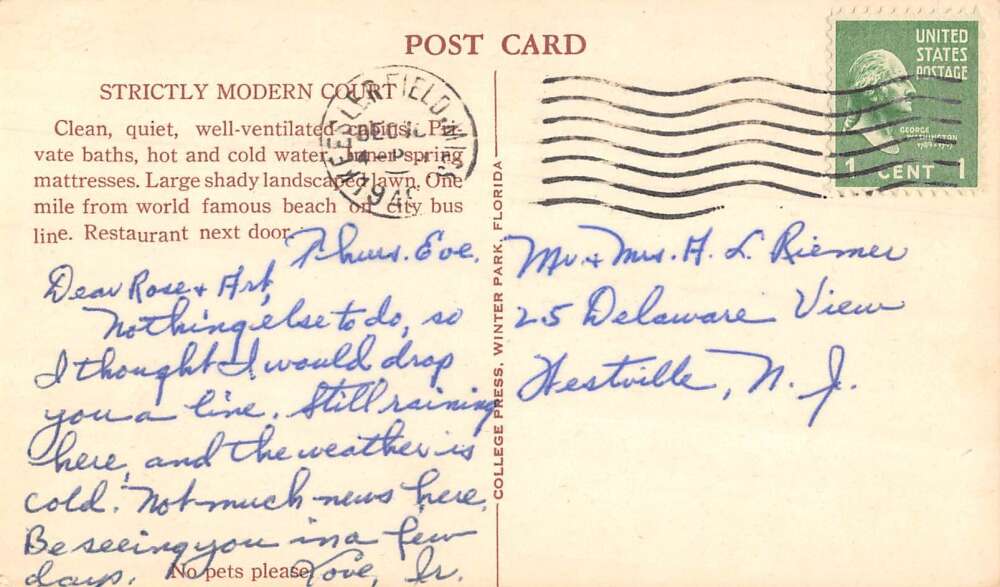 POST CARD
STRICTLY MODERN COURT
Clean, quiet, well-ventilated cabins. Pri-
vate baths, hot and cold water, inner-spring
mattresses. Large shady landscaped lawn. One
mile from world famous beach on city bus
line. Restaurant next door.
Thurs. Eve.
Dear Rose & Art,
Nothing else to do, so
I thought I would drop
you a line. Still raining
here, and the weather is
cold. Not much news here.
Be seeing you in a few
days. No pets please
Love, Jr.
COLLEGE PRESS, WINTER PARK, FLORIDA
KEESLER FIELD, MISS
DEC
4 P
194
UNITED
STATES
POSTAGE
GEORGE
WASHINGTON
1789-1797
1 CENT 1
Mr. & Mrs. A. L. Riemer
25 Delaware View
Westville, N. J.